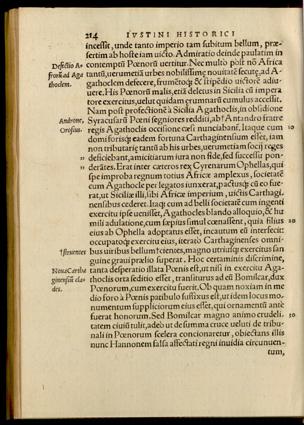 214 IVSTINI HISTORICI
incessit, unde tanto imperio tam subitum bellum, præ-
sertim ab hoste iam uicto. Admiratio deinde paulatim in
Defectio A-
fror. ad Aga
thoclem.
contemptũ Pœnorũ uertitur. Nec multo pòst nõ Africa
tantũ, uerumetiã urbes nobilissimæ nouitatẽ secutæ, ad A-
gathoclem defecere, frumẽtoq; & stipẽdio uictorẽ adiu-
uere. His Pœnorũ malis, etiã deletus in Sicilia cũ impera
tore exercitus, uelut quidam ærumnarũ cumulus accessit.
Nam post profectionẽ à Sicilia Agathoclis, in obsidione
Syracusarũ Pœni segniores redditi, ab Antandro fratre
Andronę,
Orosius.
regis Agathoclis occisione cæsi nunciabant. Itaque cum
domi forisq; eadem fortuna Carthaginensium esset, iam
non tributariæ tantũ ab his urbes, uerumetiam socij reges
deficiebant, amicitiarum iura non fide, sed successu pon-
derãtes. Erat inter cæteros rex Cyrenarum Ophellas, qui
spe improba regnum totius Africæ amplexus, societatẽ
cum Agathocle per legatos iunxerat, pactusq; cũ eo fue-
rat, ut Siciliæ illi, sibi Africæ imperium, uictis Carthagi-
nensibus cederet. Itaq; cum ad belli societatẽ cum ingenti
exercitu ipse uenisset, Agathocles blando alloquio, & hu
mili adulatione, cum sæpius simul cœnassent, quia filius
eius ab Ophella adoptatus esset, incautum eũ interfecit:
occupatoq; exercitu eius, iterato Carthaginenses omni-
bus uiribus bellum cientes, magno utriusq; exercitus san
guine graui prælio superat. Hoc certaminis discrimine,
Noua Cartha
ginensiũ cla-
des.
tanta desperatio illata Pœnis est, ut nisi in exercitu Aga-
thoclis orta seditio esset, transiturus ad eũ Bomilcar, dux
Pœnorum, cum exercitu fuerit. Ob quam noxiam in me
dio foro à Pœnis patibulo suffixus est, ut idem locus mo-
numentum suppliciorum eius esset, qui ornamentũ ante
fuerat honorum. Sed Bomilcar magno animo crudeli-
tatem ciuiũ tulit, adeò ut de summa cruce ueluti de tribu-
nali in Pœnorum scelera concionaretur, obiectans illis
nunc Hannonem falsa affectati regni inuidia circumuen-
tum,